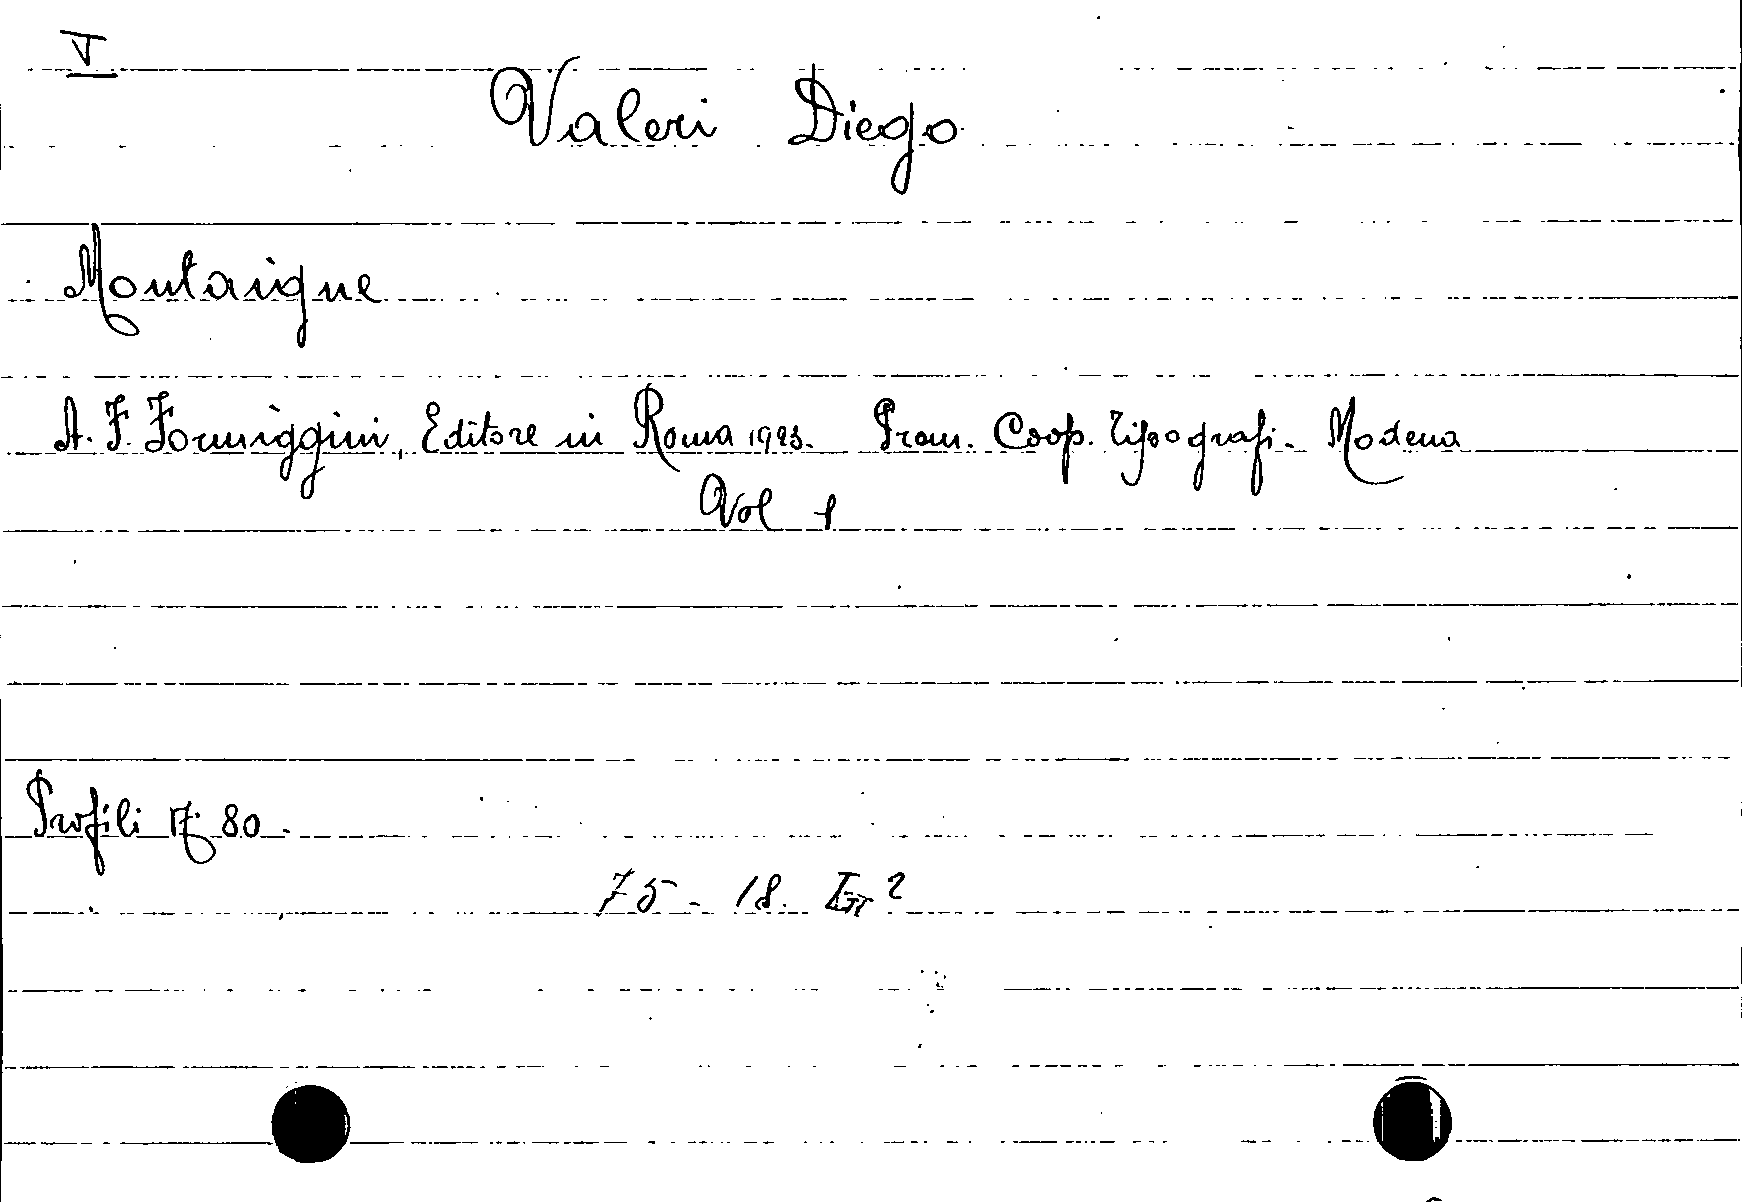 V
Valeri Diego
Montaigne
A. F. Formiggini, Editore in Roma 1925. Prem. Coop. Tipografi - Modena
Vol 1
Profili N. 80.
75 - 18.